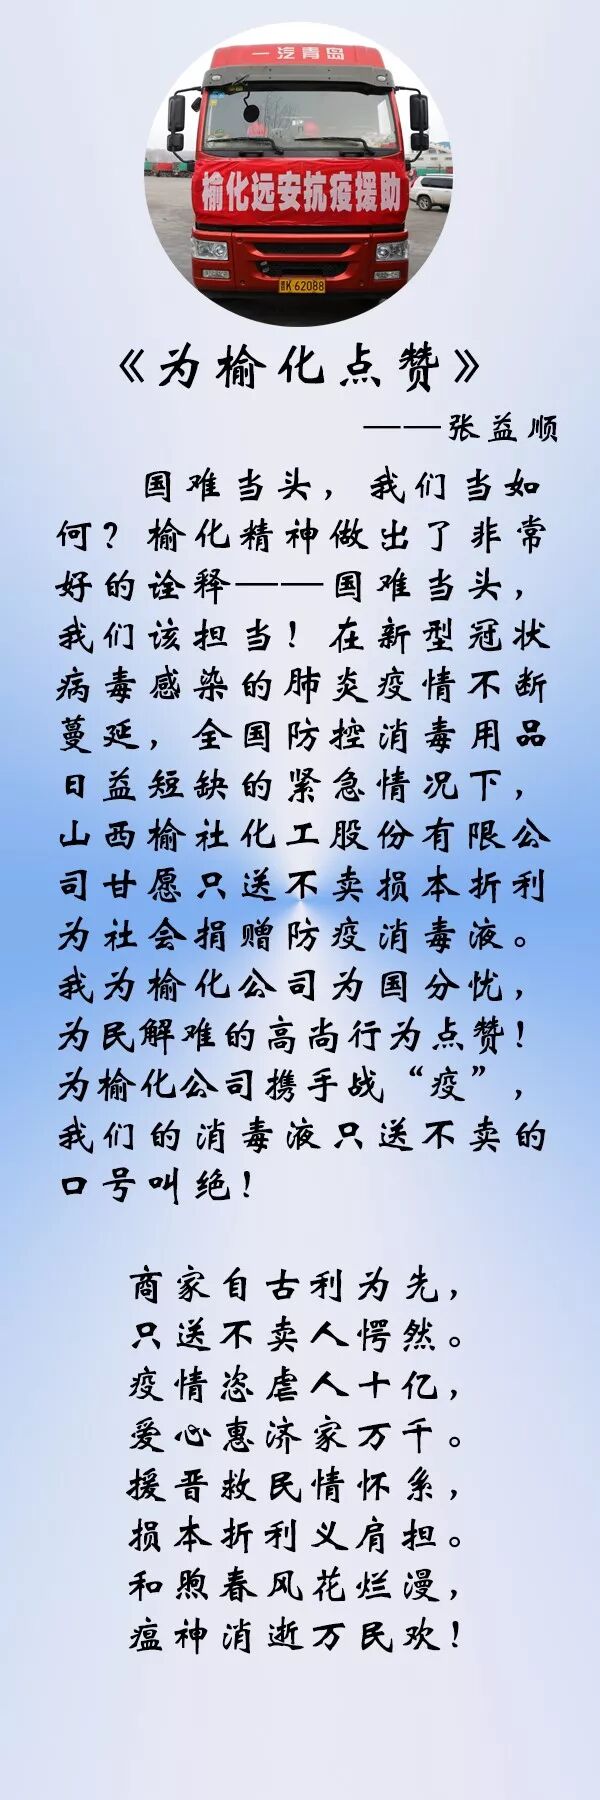 一汽青岛
榆化远安抗疫援助
晋K 62088
《为榆化点赞》
——张益顺
国难当头，我们当如
何？榆化精神做出了非常
好的诠释——国难当头，
我们该担当！在新型冠状
病毒感染的肺炎疫情不断
蔓延，全国防控消毒用品
日益短缺的紧急情况下，
山西榆社化工股份有限公
司甘愿只送不卖损本折利
为社会捐赠防疫消毒液。
我为榆化公司为国分忧，
为民解难的高尚行为点赞！
为榆化公司携手战“疫”，
我们的消毒液只送不卖的
口号叫绝！
商家自古利为先，
只送不卖人愕然。
疫情恣虐人十亿，
爱心惠济家万千。
援晋救民情怀系，
损本折利义肩担。
和煦春风花烂漫，
瘟神消逝万民欢！